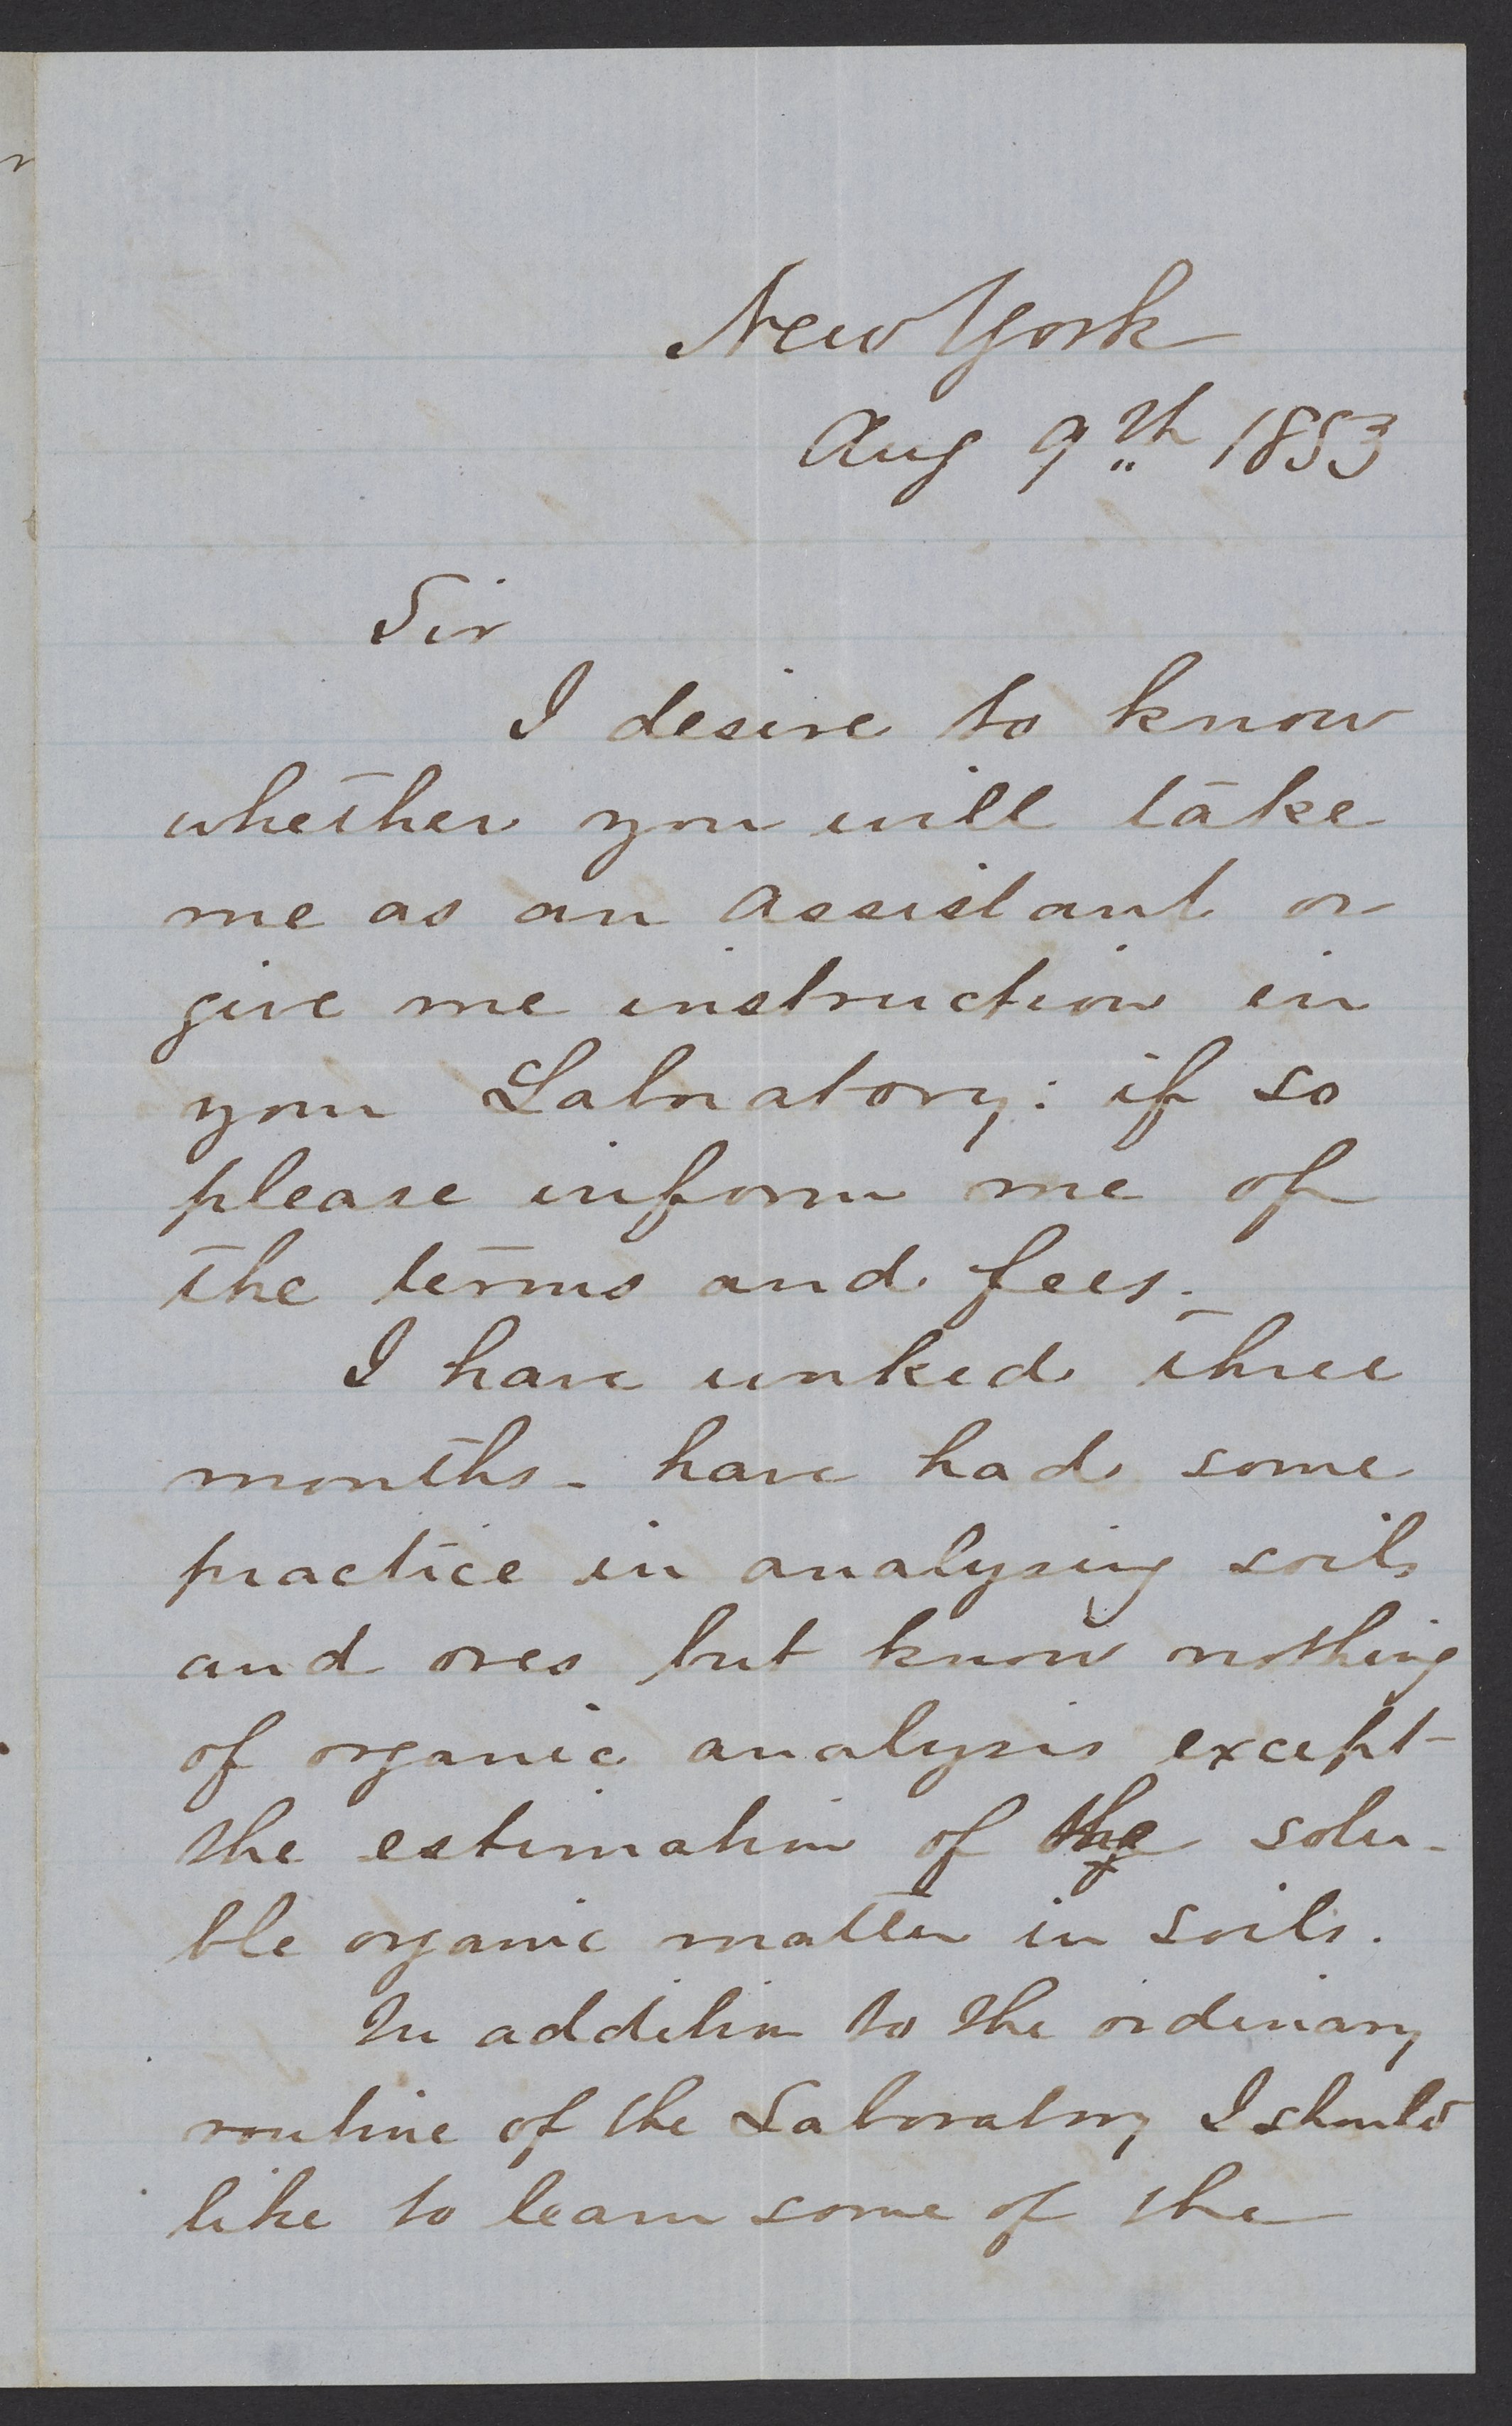 New York
Aug 9th 1853
Sir
I desire to know
whether you will take
me as an assistant or
give me instruction in
your Laboratory: if so
please inform me of
the terms and fees.
I have worked three
months - have had some
practice in analysing soils
and ores but know nothing
of organic analysis except
the estimation of the solu-
ble organic matter in soils.
In addition to the ordinary
routine of the Laboratory I should
like to learn some of the